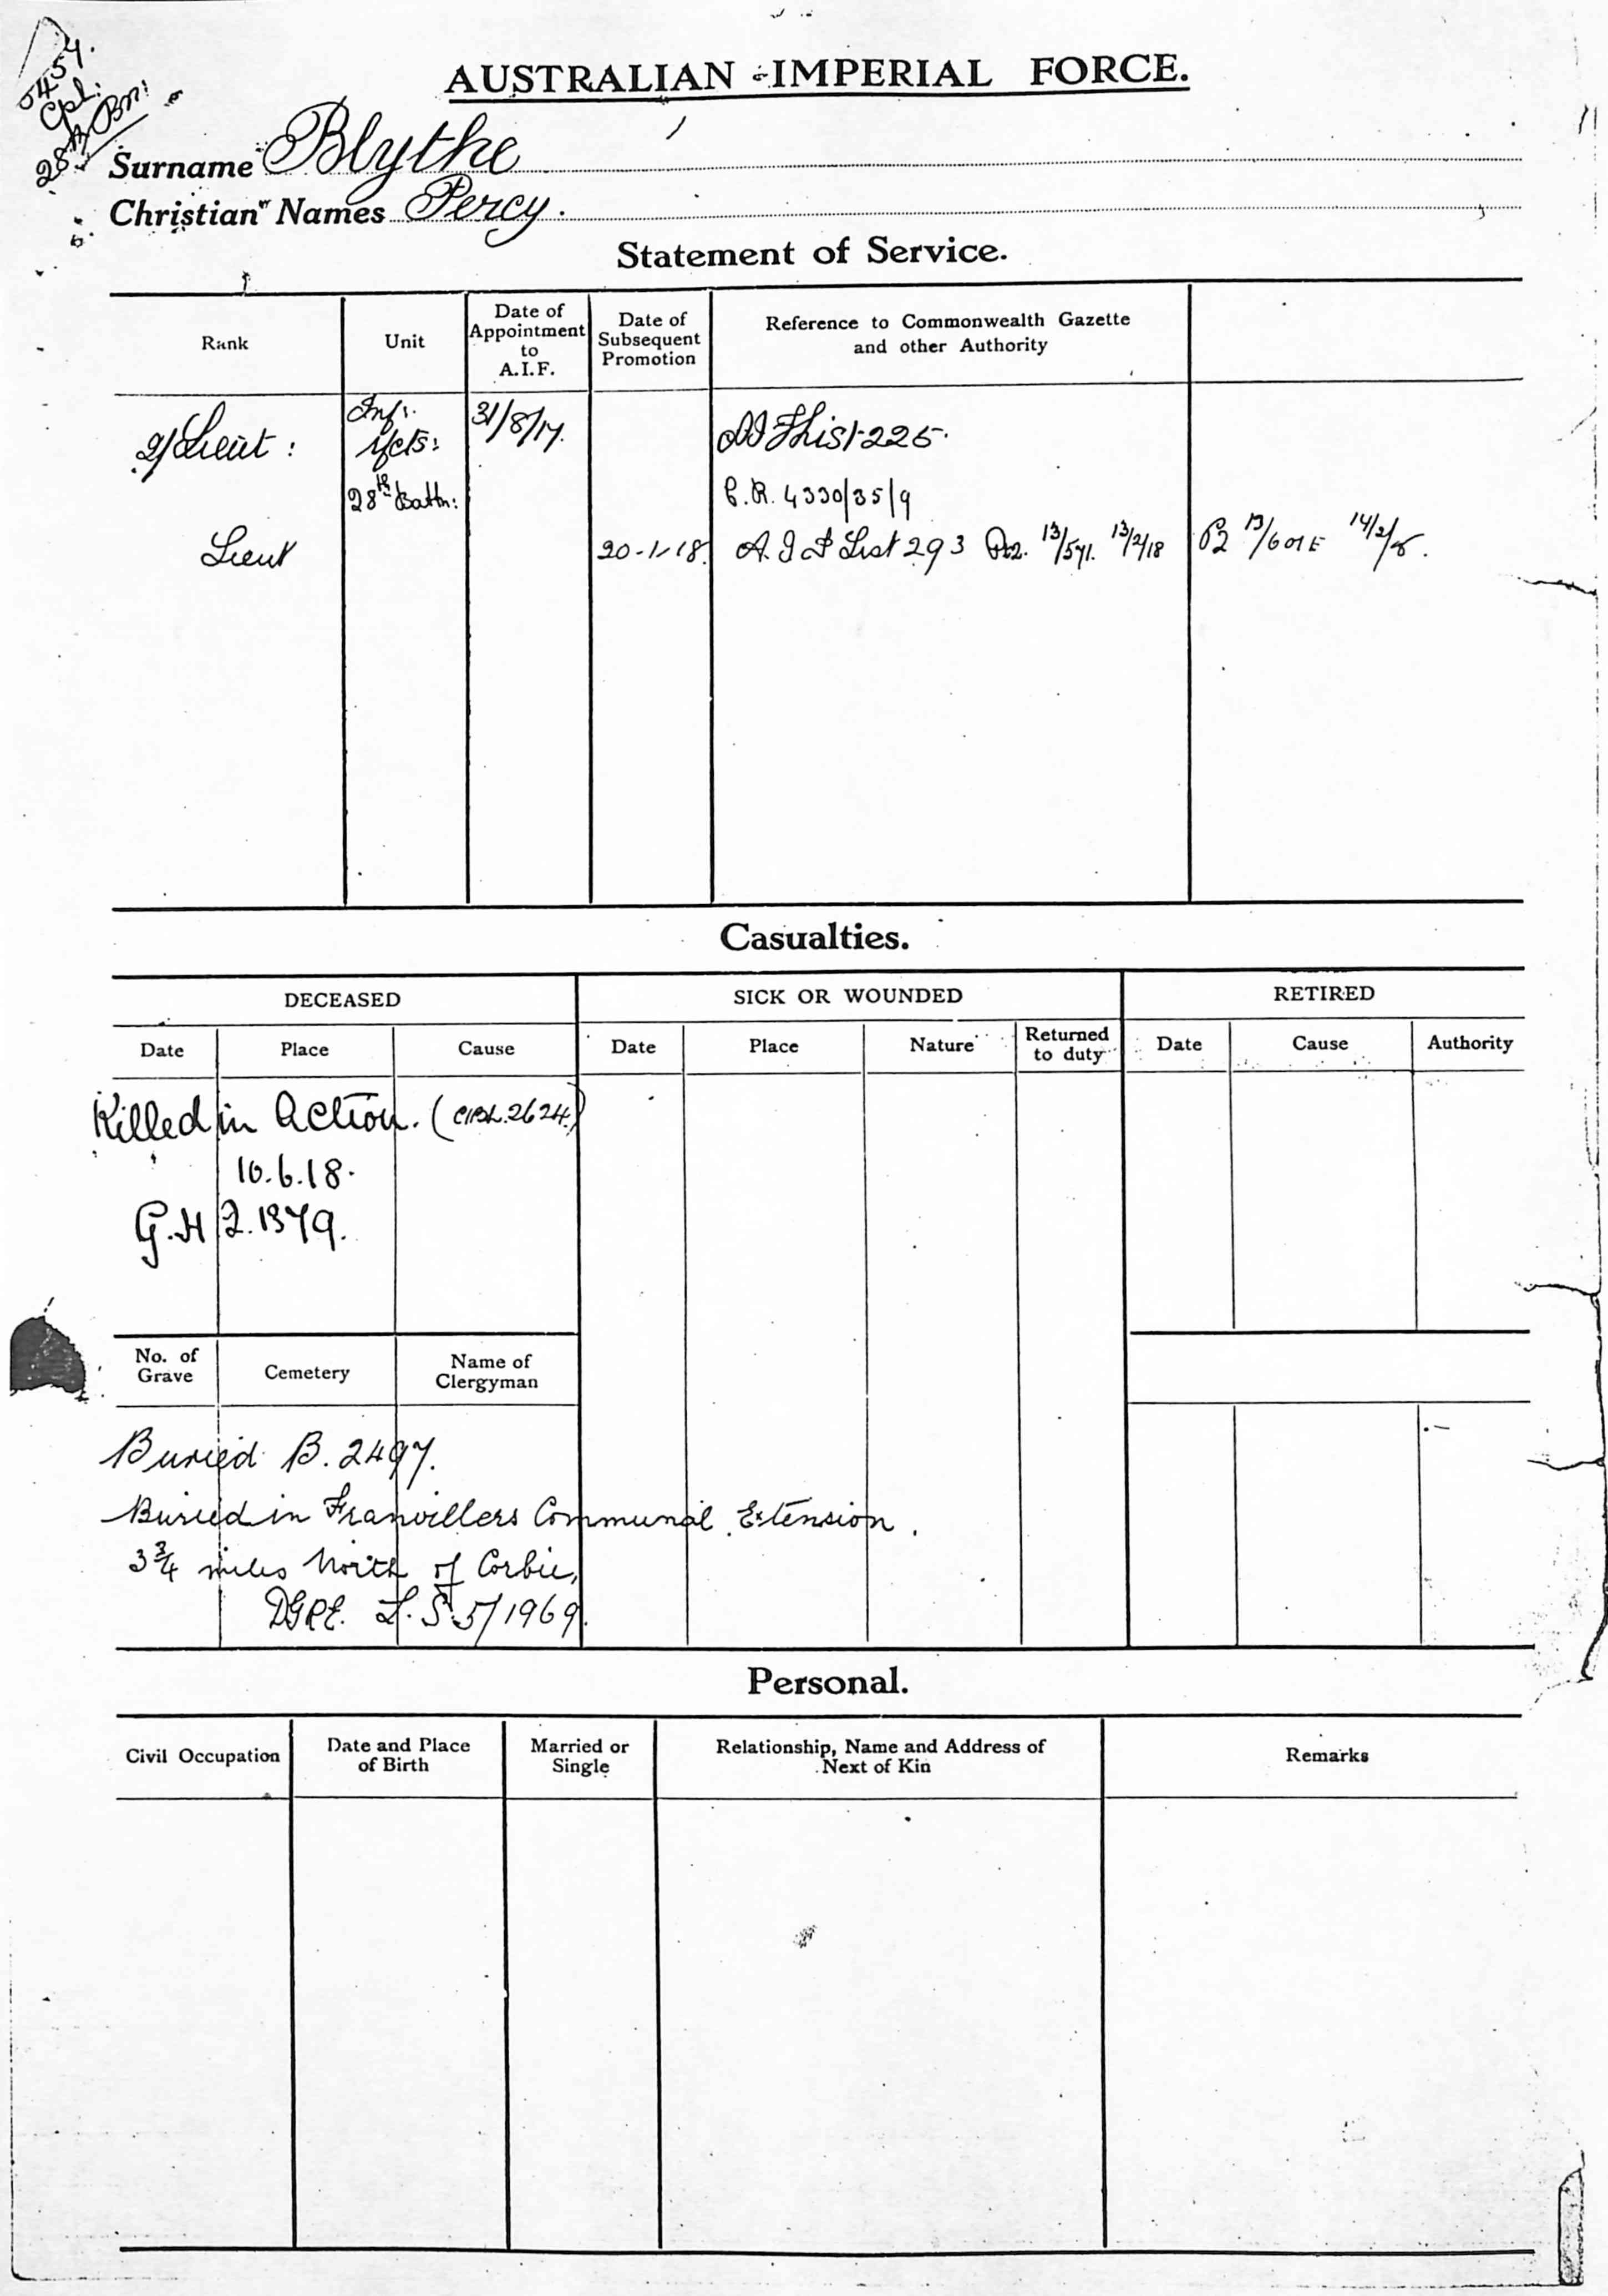 5457.
Cpl.
28th Bn.
AUSTRALIAN IMPERIAL FORCE.
Surname Blythe
Christian Names Percy.
Statement of Service.
Rank Unit Date of Appointment to A.I.F. Date of Subsequent Promotion Reference to Commonwealth Gazette and other Authority
2/Lieut: Inf: 31/8/17. List 225.
28th Battn: C.R. 4330/35/9
Lieut 20-1-18. A.I.F List 293 13/571. 13/2/18
Casualties.
DECEASED SICK OR WOUNDED RETIRED
Date Place Cause Date Place Nature Returned to duty Date Cause Authority
Killed in Action. (2624.)
10.6.18.
No. of Grave Cemetery Name of Clergyman
Buried B. 2497.
Buried in Franvillers Communal Extension.
3¾ miles North of Corbie,
DGRE. L.S 5/1969.
Personal.
Civil Occupation Date and Place of Birth Married or Single Relationship, Name and Address of Next of Kin Remarks